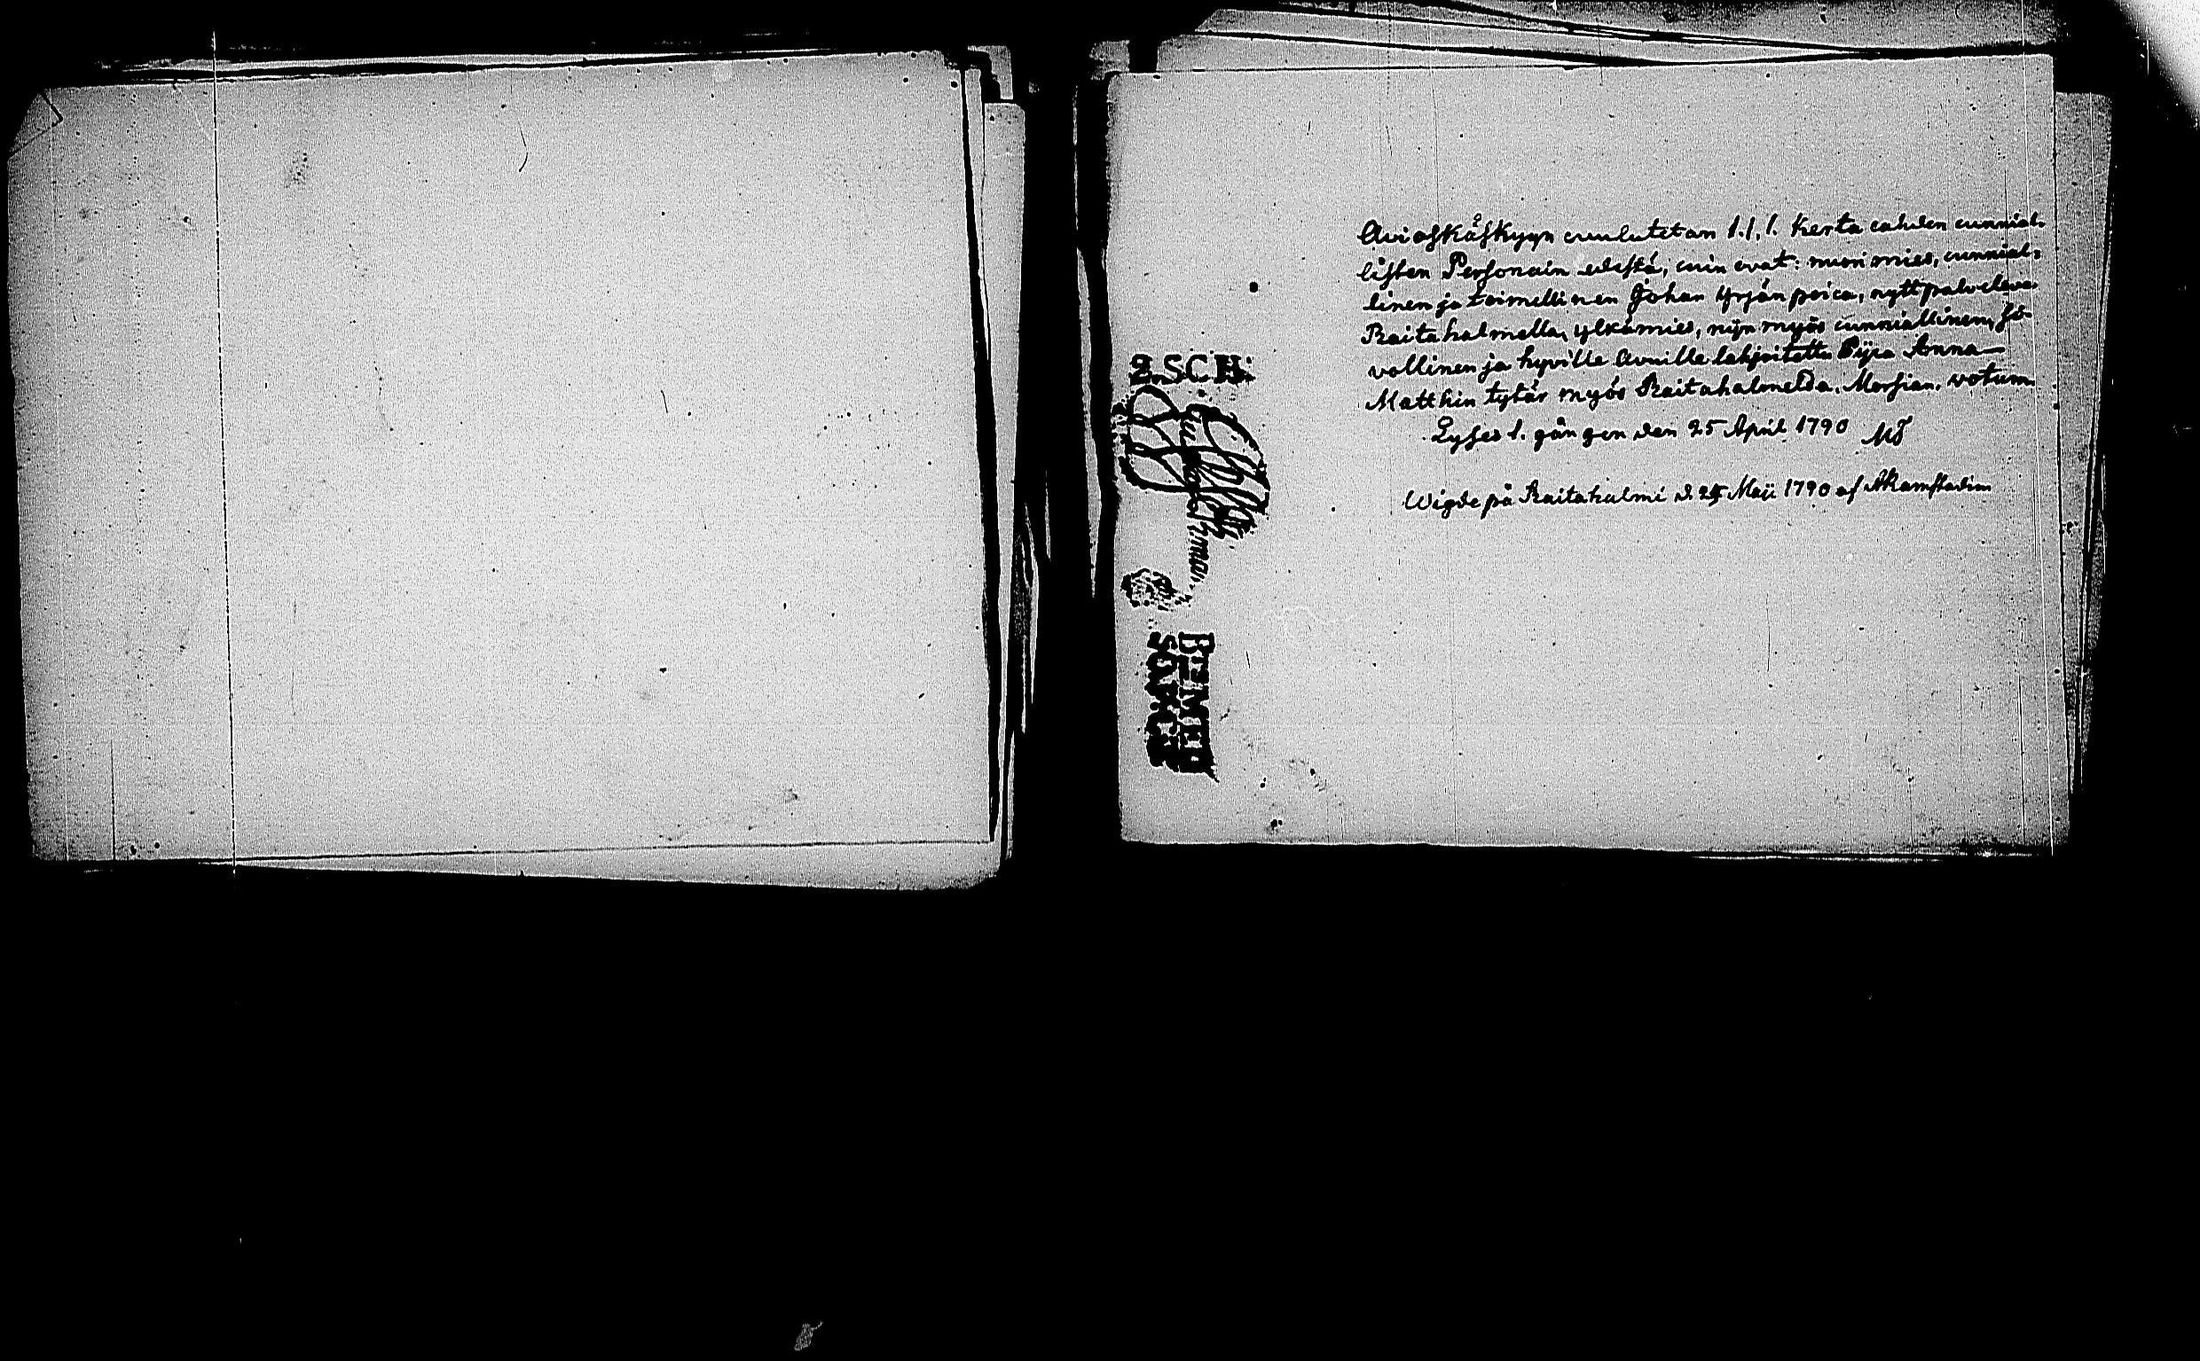 Aviaskäskyyn cuulutetan 1.1.1. Kerta cahden cunnial-
listen Personain edestä, cuin ovat: nuori mies, cunnial-
linen ja toimellinen Johan Yrjän poica, nytt palveleva
Raitahalmella, ylkämies, nijn myös cunniallinen, Si-
vollinen ja hyville Avuille lahjoitettu Pijca Anna
Matthin tytär myös Raitahalmelda. Morsian. votum
Lyses 1. gången den 25 April 1790 MT
Wigde på Raitahalmi d. 24 Maji 1790 af
2.SCH.